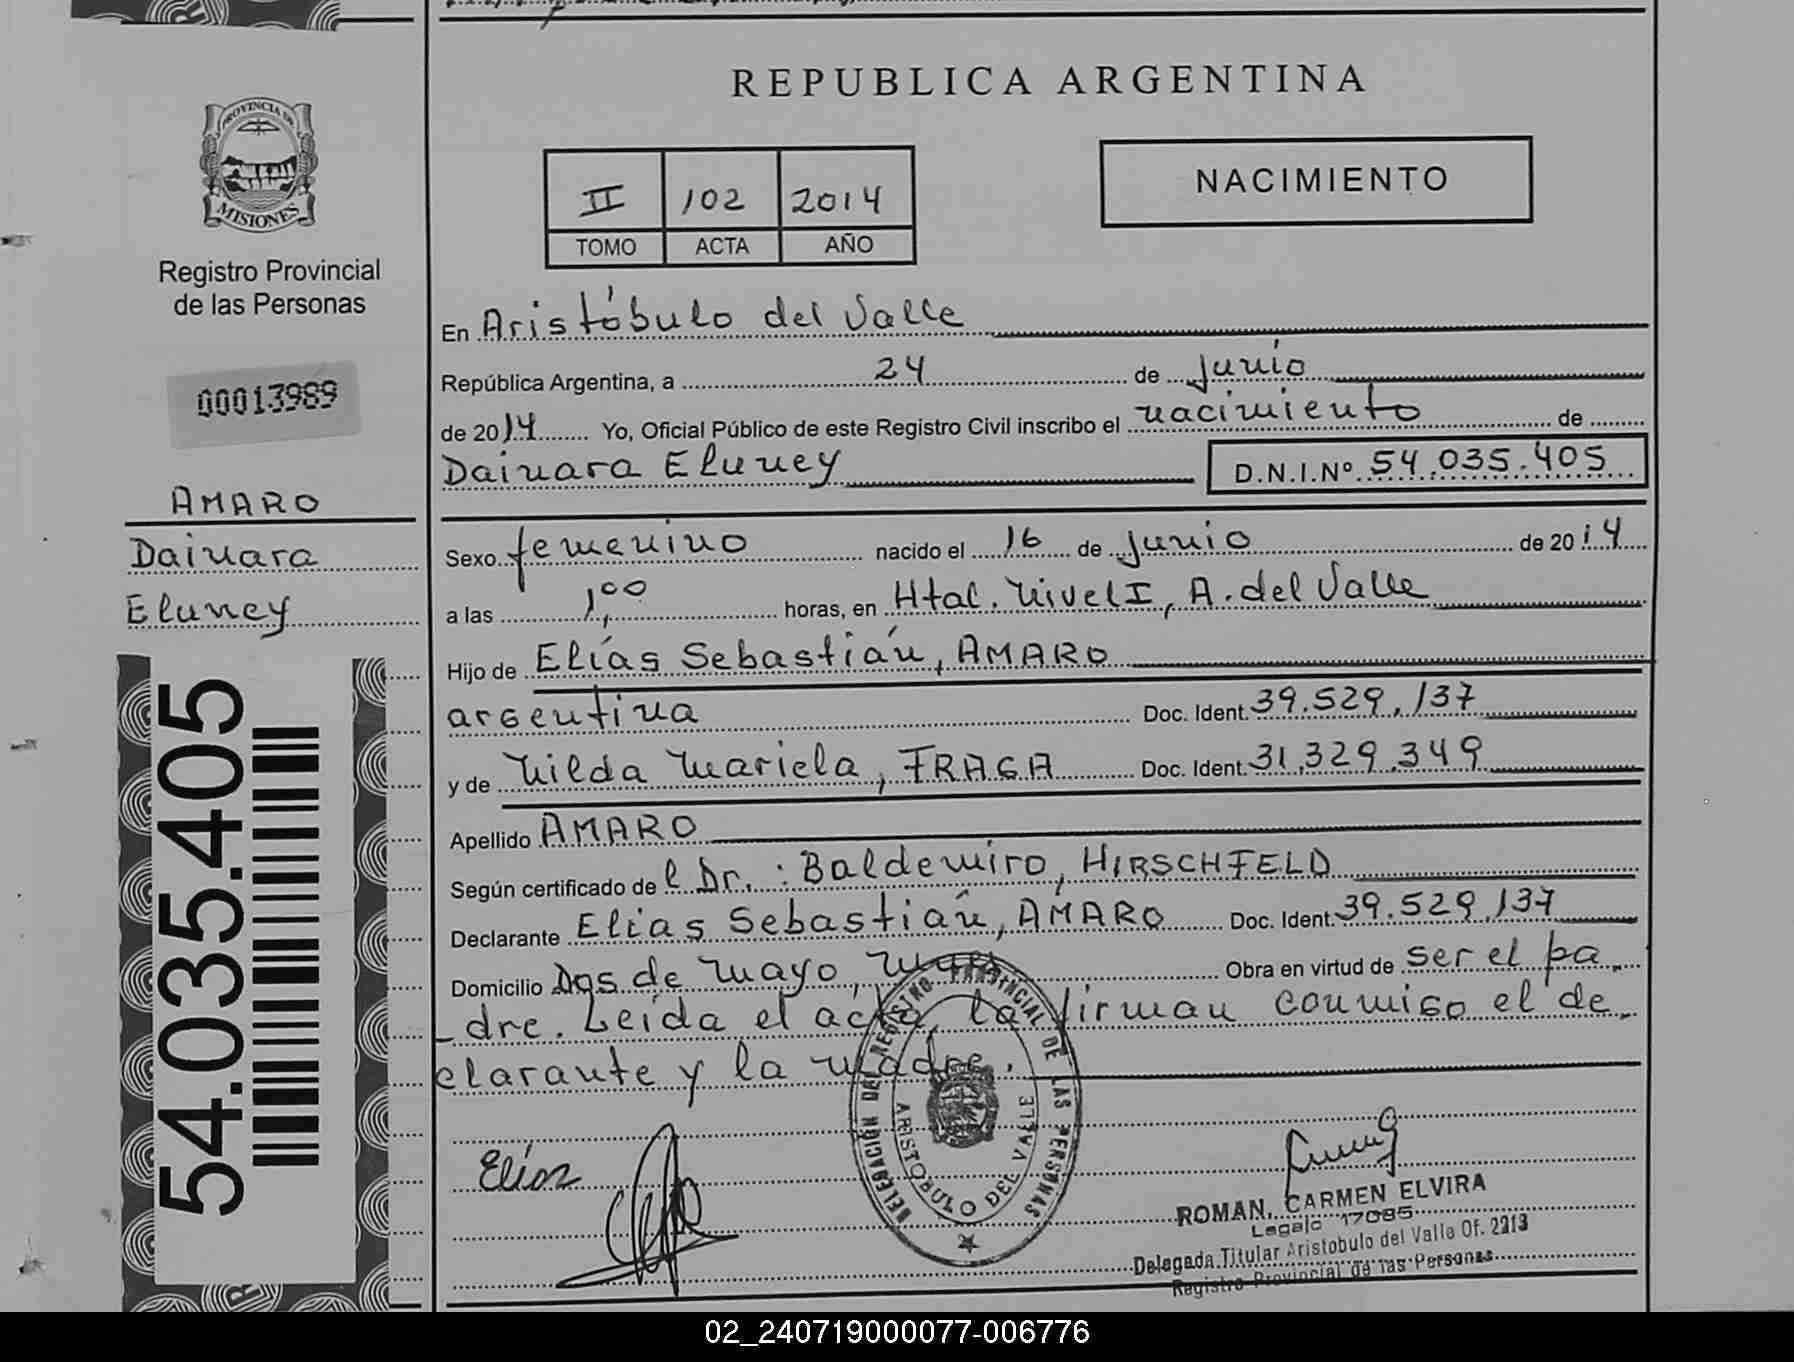 REPUBLICA ARGENTINA
PROVINCIA DE
MISIONES
Registro Provincial
de las Personas
00013989
AMARO
Dainara
Eluney
54.035.405
II 102 2014
TOMO ACTA AÑO
NACIMIENTO
En Aristóbulo del Valle
República Argentina, a 24 de Junio
de 2014 Yo, Oficial Público de este Registro Civil inscribo el nacimiento de
Dainara Eluney D.N.I.Nº 54.035.405
Sexo femenino nacido el 16 de Junio de 2014
a las 1,00 horas, en Htal. Nivel I, A. del Valle
Hijo de Elías Sebastián, AMARO
argentina Doc. Ident. 39.529.137
y de Nilda Mariela, FRAGA Doc. Ident. 31.329.349
Apellido AMARO
Según certificado de l Dr. : Baldemiro, HIRSCHFELD
Declarante Elías Sebastián, AMARO Doc. Ident. 39.529.137
Domicilio Dos de Mayo, Mnes Obra en virtud de ser el pa_
_dre. Leída el acta, la firman conmigo el de_
clarante y la madre.
DELEGACIÓN DEL REGISTRO PROVINCIAL DE LAS PERSONAS
ARISTOBULO DEL VALLE
Elías
ROMAN, CARMEN ELVIRA
Legajo 17085
Delegada Titular Aristobulo del Valle Of. 2213
Registro Provincial de las Personas
02_240719000077-006776